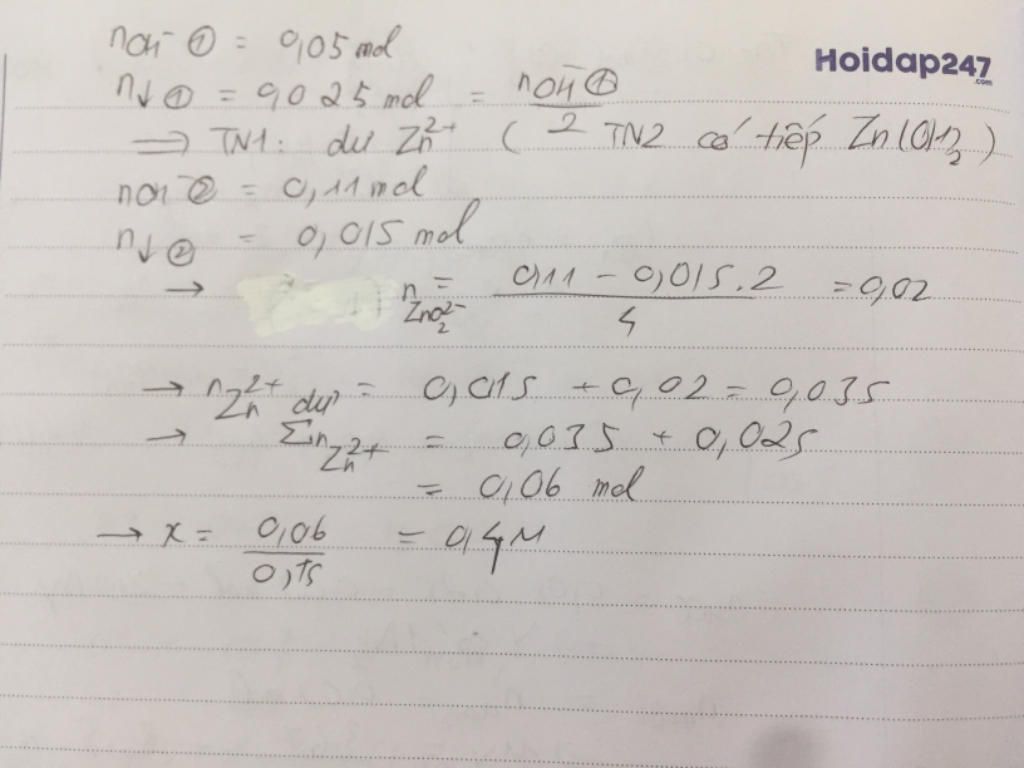 nOH⁻ ① = 0,05 mol
Hoidap247
.com
n↓ ① = 0,025 mol = nOH⁻ ① / 2
⇒ TN1: dư Zn²⁺ ( TN2 có tiếp Zn(OH)₂ )
nOH⁻ ② = 0,11 mol
n↓ ② = 0,015 mol
→ nZnO₂²⁻ = (0,11 − 0,015.2) / 4 = 0,02
→ nZn²⁺ dư = 0,015 + 0,02 = 0,035
→ ΣnZn²⁺ = 0,035 + 0,025
= 0,06 mol
→ x = 0,06 / 0,15 = 0,4M